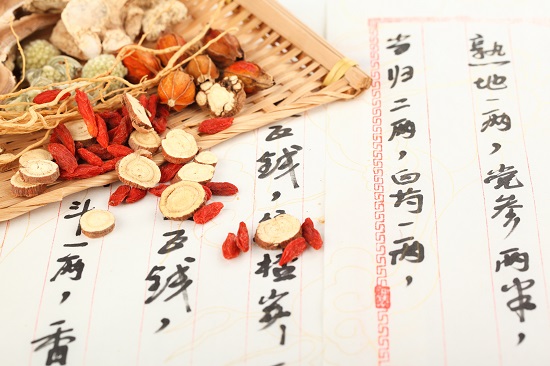 熟地一两，党参两半，
当归二两，白芍一两，
五钱，
五钱，
斗一两，香